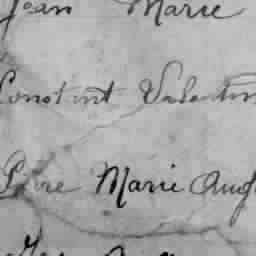 Jean Marie
Constant Valentin
Pierre Marie Aug